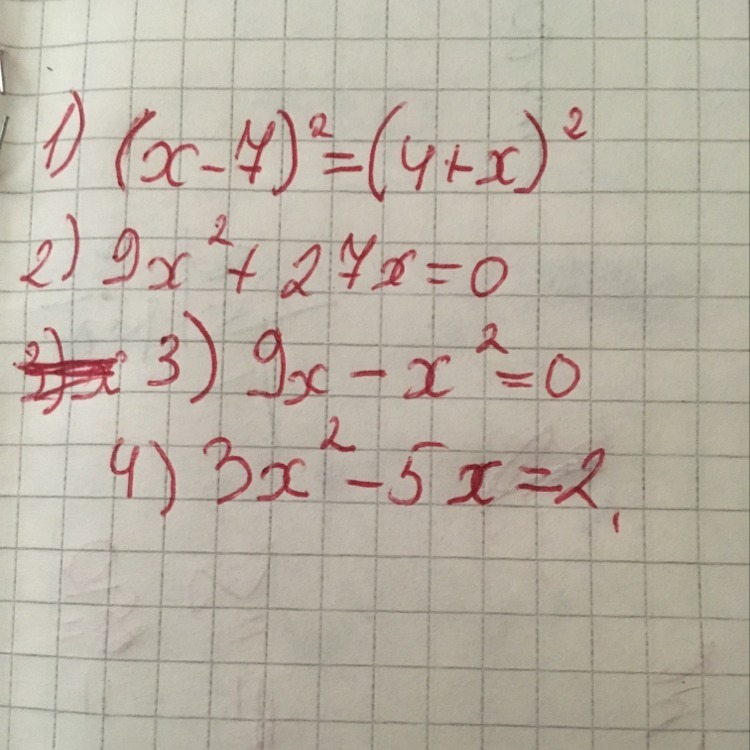 1) (x-7)²=(4+x)²
2) 9x²+27x=0
3) 9x-x²=0
4) 3x²-5x=2,